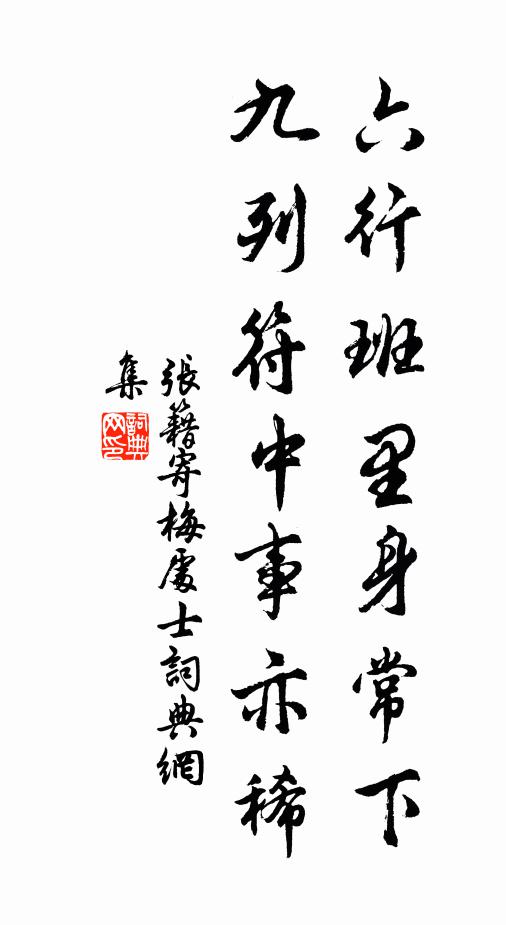 六行班里身常下
九列符中事亦稀
張籍寄梅處士詞典網
集
詞典
网印